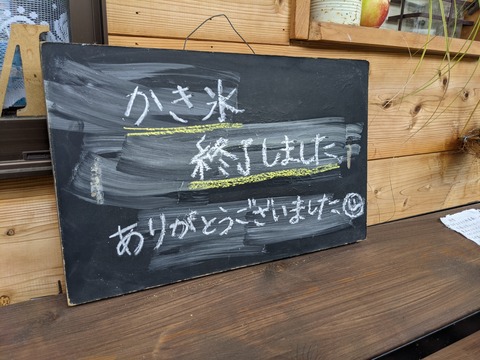 かき氷
終了しました
ありがとうございました